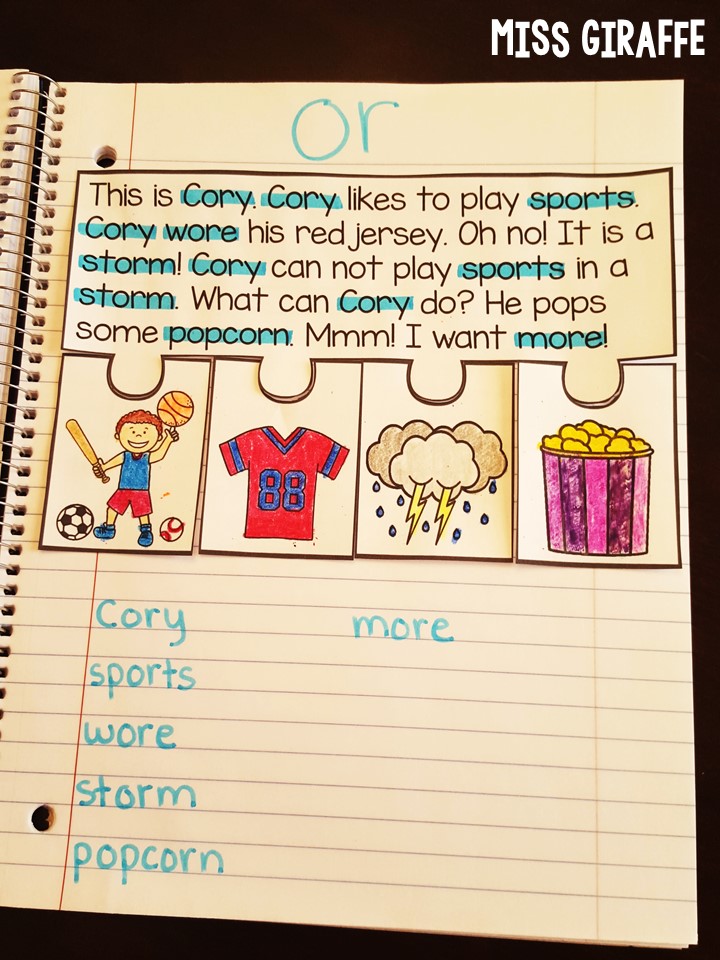 MISS GIRAFFE
or
This is Cory. Cory likes to play sports.
Cory wore his red jersey. Oh no! It is a
storm! Cory can not play sports in a
storm. What can Cory do? He pops
some popcorn. Mmm! I want more!
88
Cory more
sports
wore
storm
popcorn